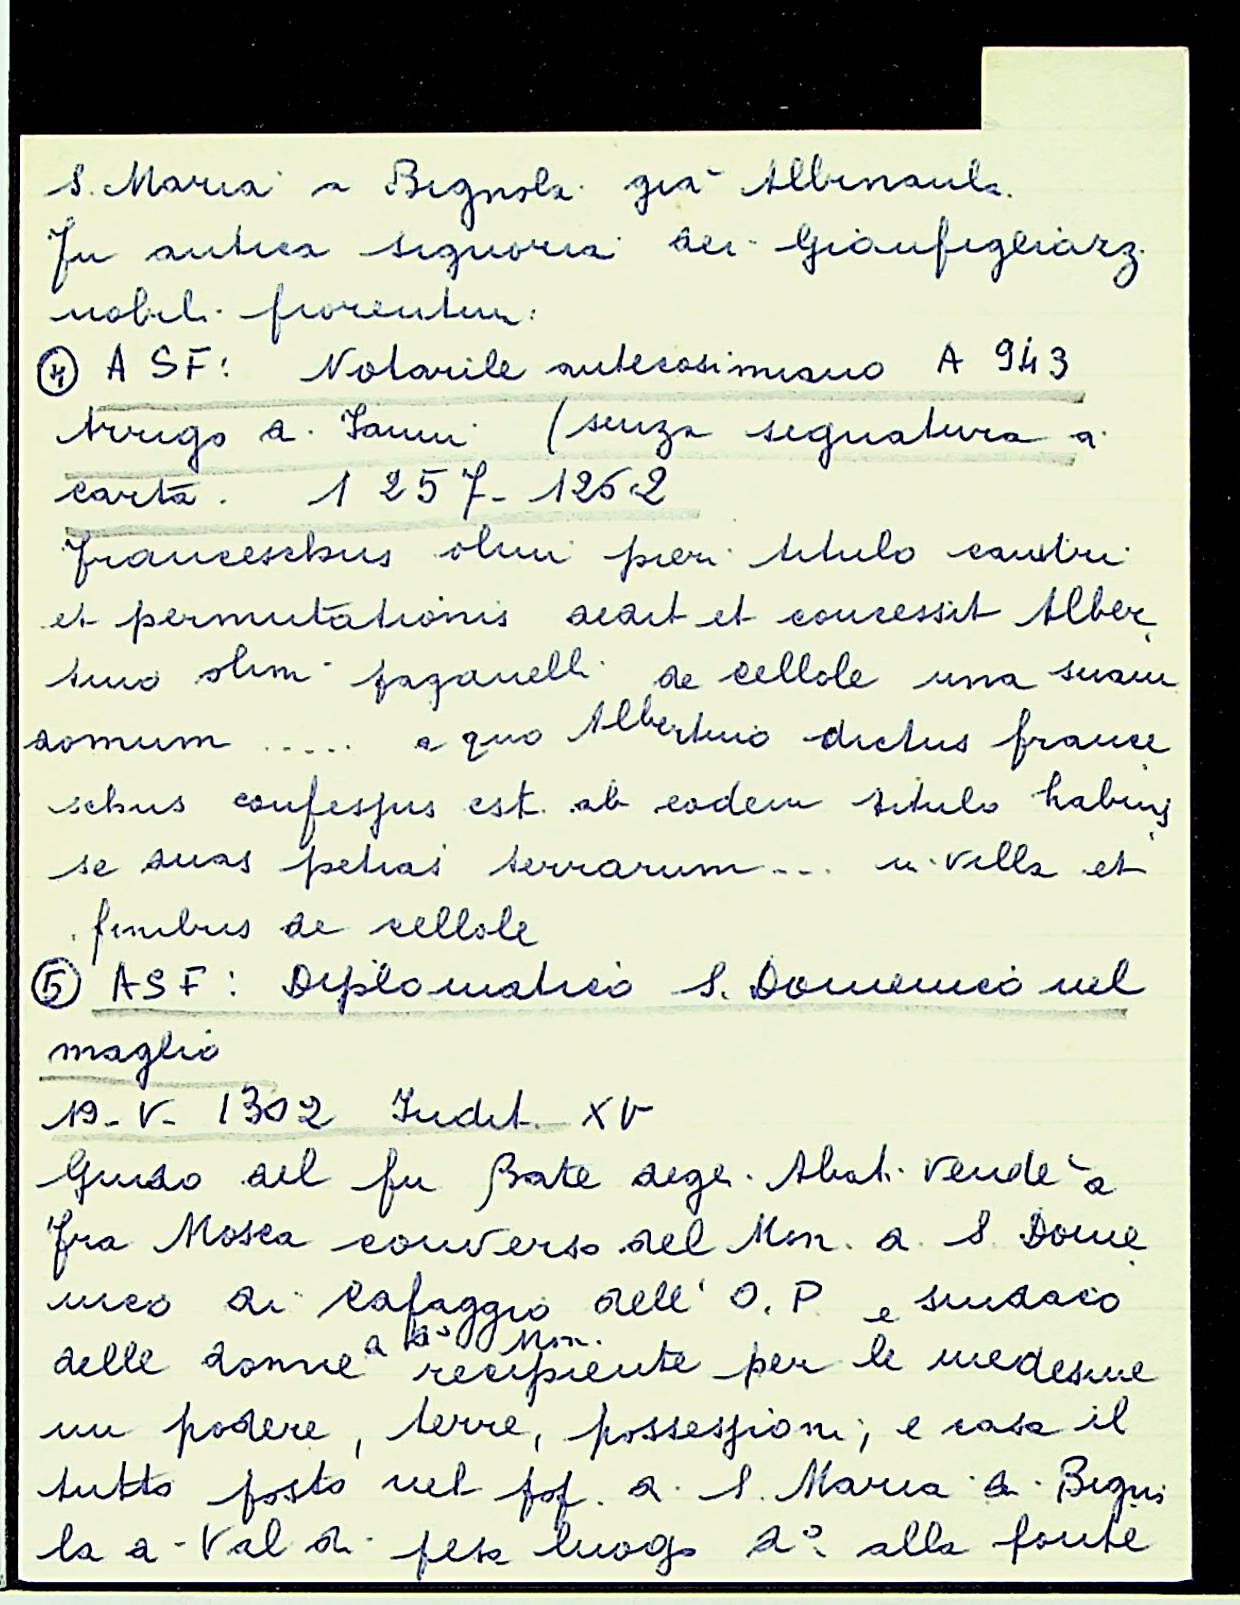 S. Maria a Bignola già Albinaula.
Fu antica signoria dei Gianfigliazz
nobili fiorentini
④ ASF: Notarile antecosimiano A 943
Arrigo di Ianni (senza segnatura di
carta. 1257-1262
Franceschus olim pieri titulo cambii
et permutationis dedit et concessit Alber
tino olim paganelli de cellole una suam
domum ..... a quo Albertino dictus france
schus confessus est ab eodem titulo habuis
se duas petias terrarum.... in villa et
finibus de cellole
⑤ ASF: Diplomatico S. Domenico nel
maglio
19-V-1302 Indit. XV
Guido del fu Bate degli Abati vendè a
Fra Mosca converso del Mon. di S. Dome
nico di Cafaggio dell' O.P. e sindaco
delle donne di do Mon. recipiente per le medesime
un podere, terre, possessioni, e casa il
tutto posto nel pop. di S. Maria a Bigno
la a Val di pesa luogo do alla fonte